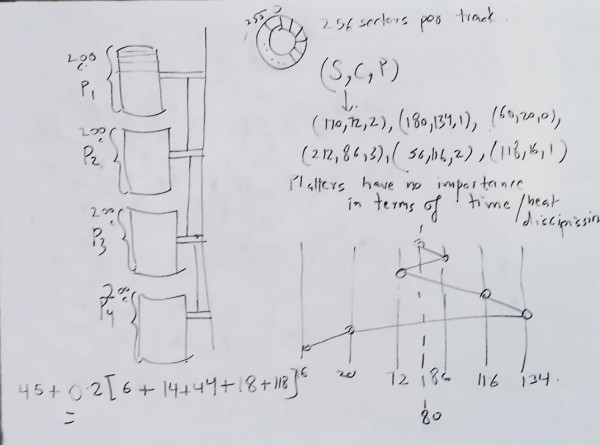 255 0
256 sectors per track.
200
c
P1
(S, C, P)
(170,72,2), (180,134,1), (60,20,0),
200
c
P2
(212,86,3), (56,116,2), (118,16,1)
Platters have no importance
in terms of time/heat
200
c
P3
200
c
P4
16 20 72 86 116 134.
80
45 + 0.2[6 + 14+44+18+118]
=